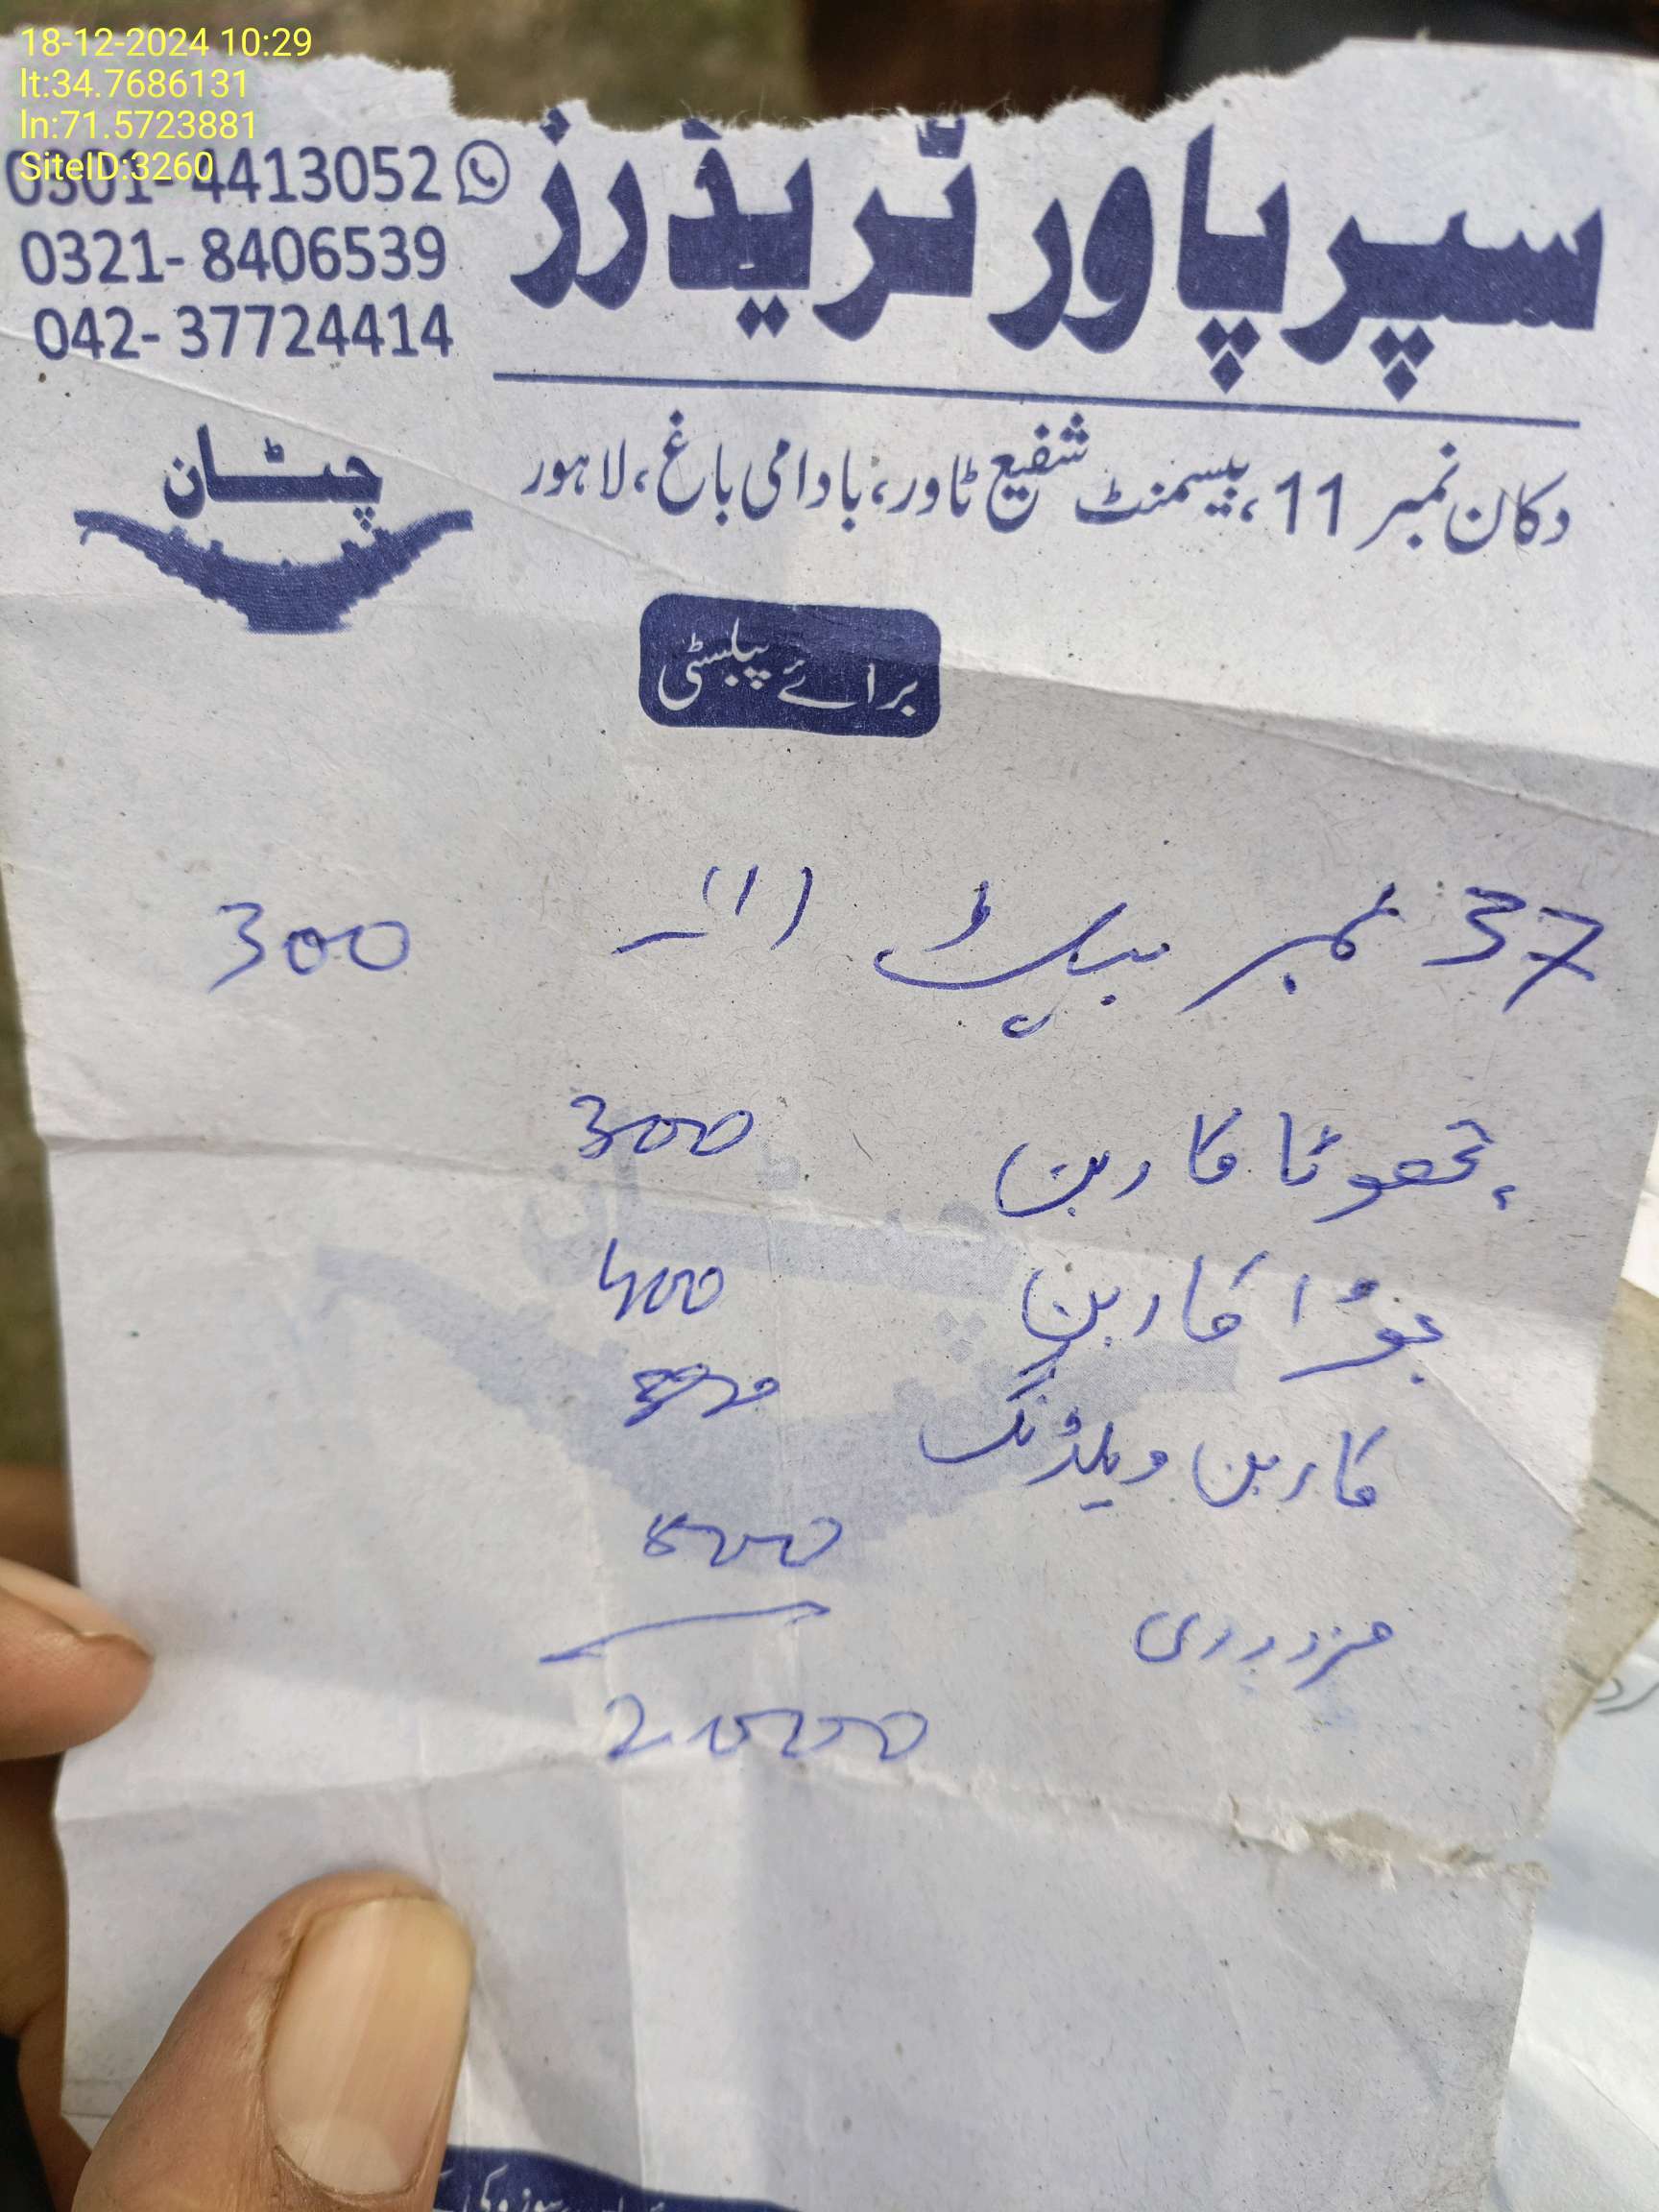 18-12-2024 10:29
lt:34.7686131
ln:71.5723881
SiteID:3260
سپر پاور ٹریڈرز
0301-4413052
0321-8406539
042-37724414
دکان نمبر 11، بیسمنٹ شفیع ٹاور، بادامی باغ، لاہور
چٹان
برائے پبلسٹی
37 نمبر 300
چھوٹا کاربن 300
بڑا کاربن 400
کاربن ویلڈنگ
مزدوری
2000